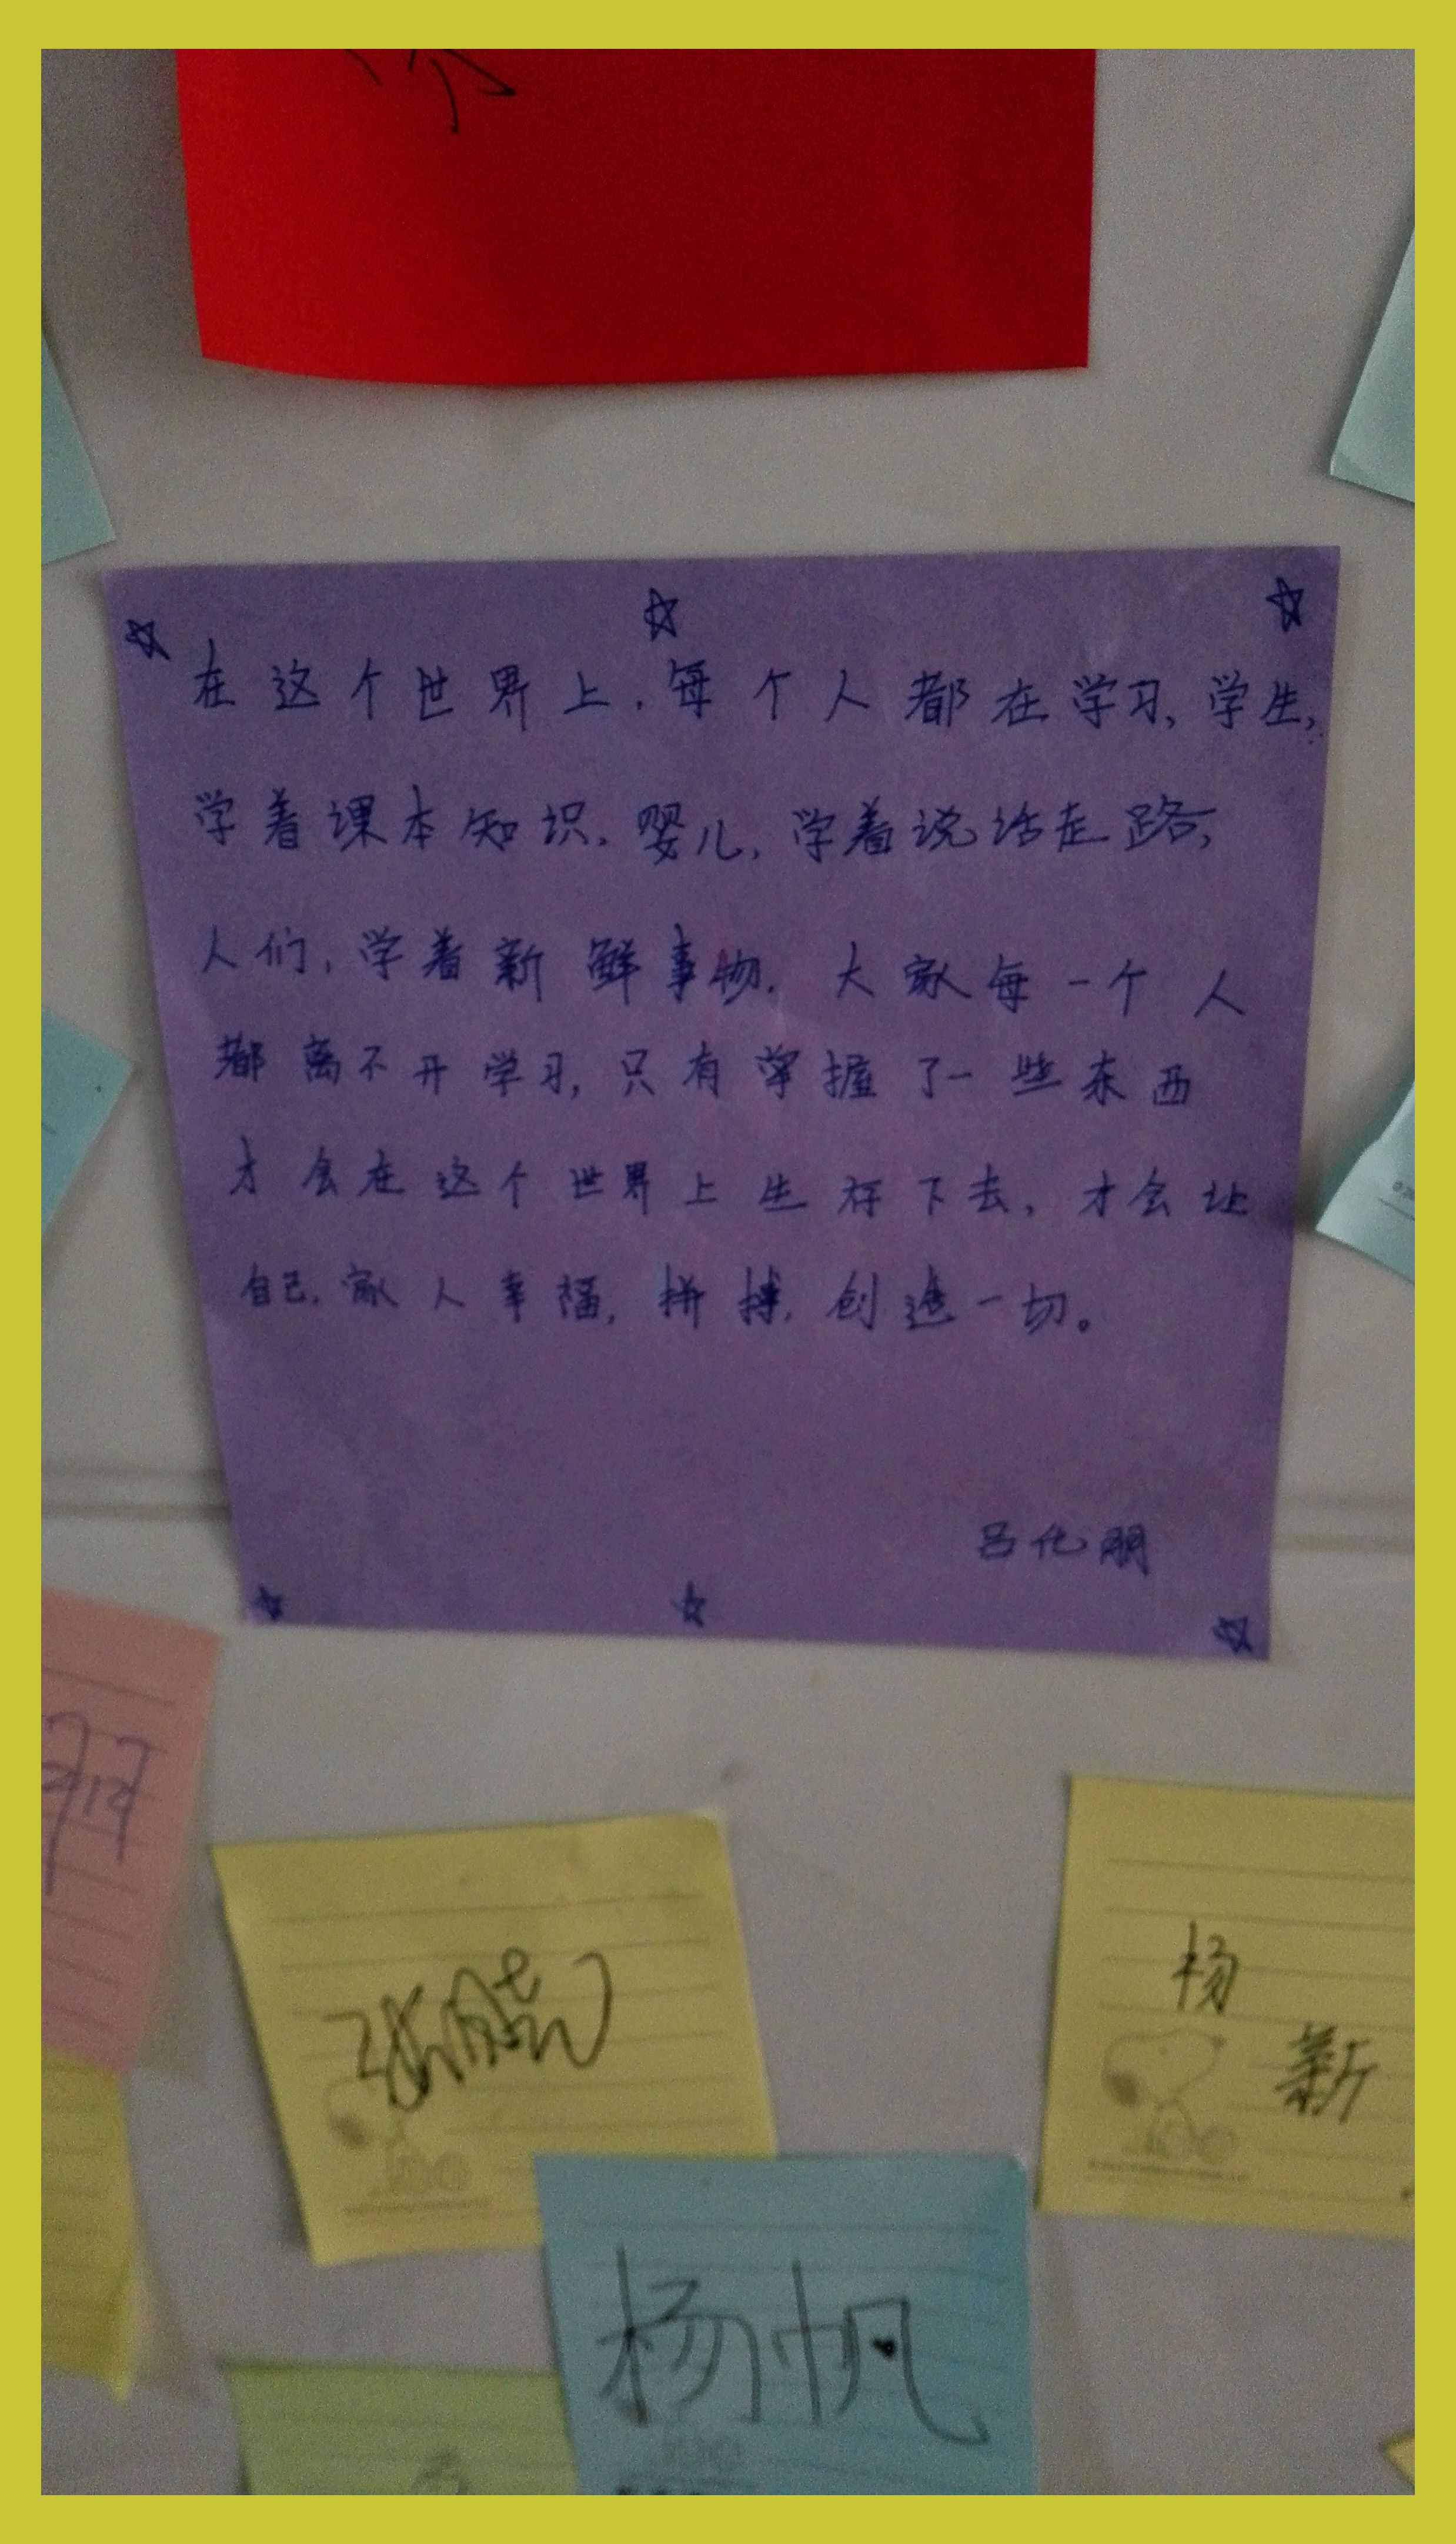 在这个世界上,每个人都在学习,学生,
学着课本知识,婴儿,学着说话走路,
人们,学着新鲜事物,大家每一个人
都离不开学习,只有掌握了一些东西
才会在这个世界上生存下去,才会让
自己,家人幸福,拼搏,创造一切。
吕化朋
杨
新
杨帆